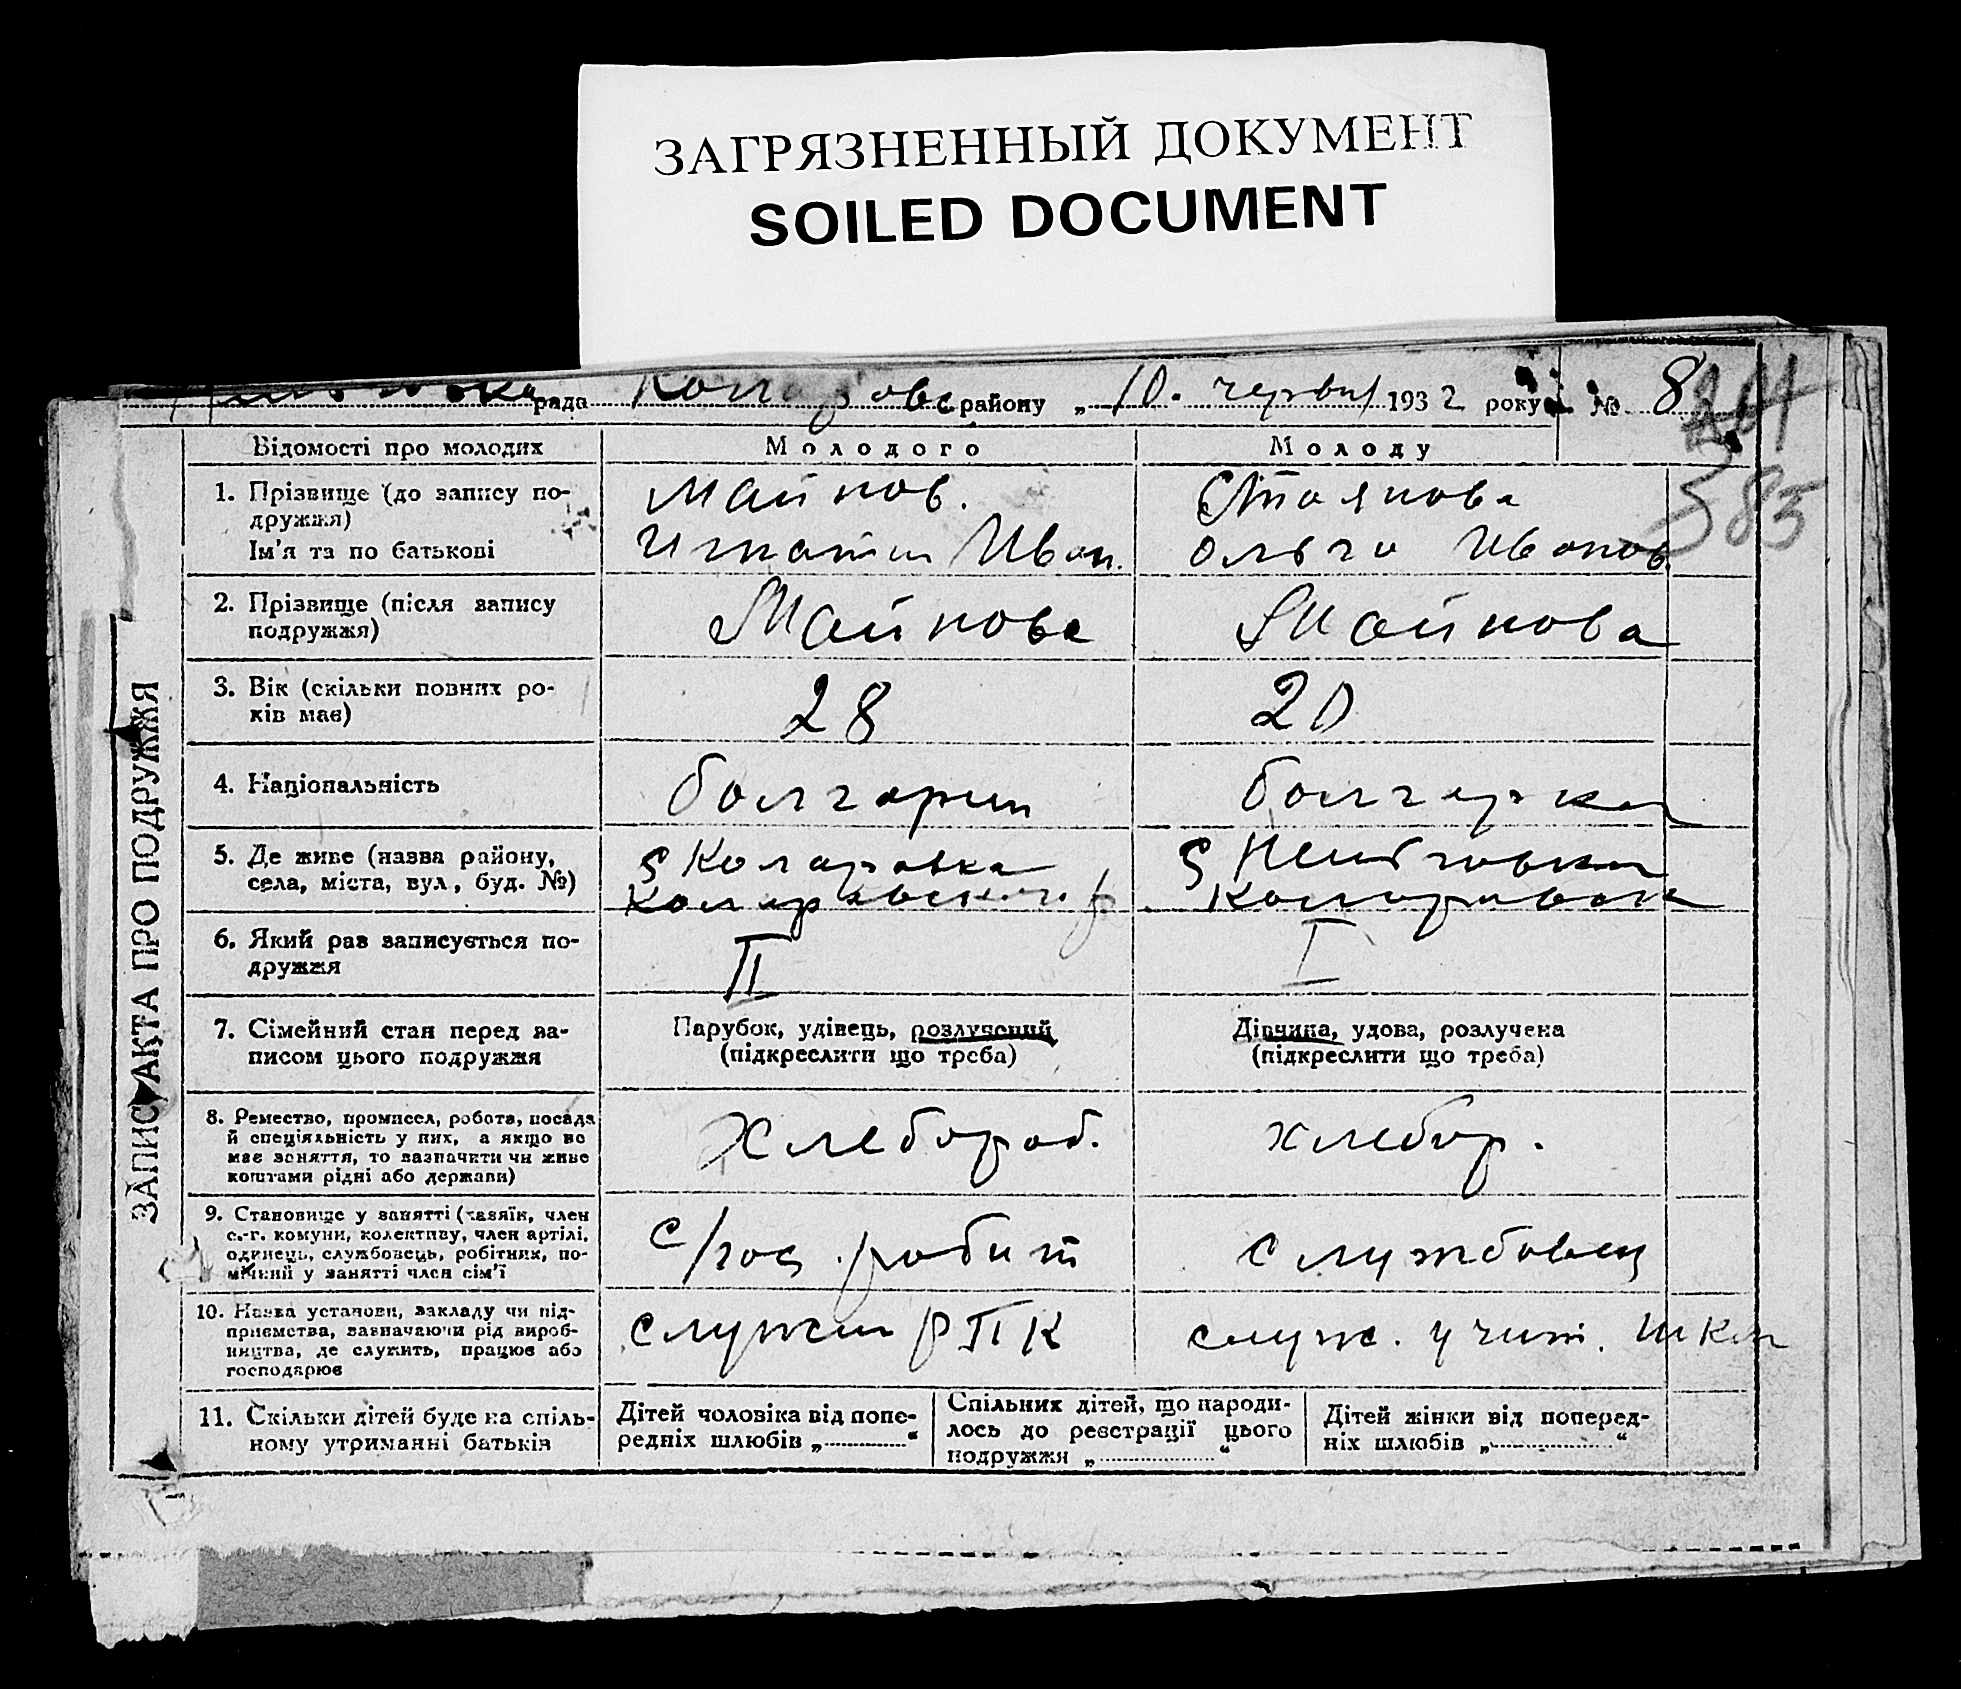 ЗАГРЯЗНЕННЫЙ ДОКУМЕНТ
SOILED DOCUMENT
рада району „ 10. червня 1932 року № 8
385
ЗАПИС АКТА ПРО ПОДРУЖЖЯ
Відомості про молодих Молодого Молоду
1. Прізвище (до запису по-
дружжя)
Ім'я та по батькові
Майнов.
Игнатий Иван.
Стоянова
Ольга Иванов.
2. Прізвище (після запису
подружжя)
Майнова
Майнова
3. Вік (скільки повних ро-
ків має)
28
20
4. Національність
болгарин
болгарка
5. Де живе (назва району,
села, міста, вул, буд. №)
с Коларовка
Коларовского р
с
6. Який раз записується по-
дружжя
II
I
7. Сімейний стан перед за-
писом цього подружжя
Парубок, удівець, розлучений
(підкреслити що треба)
Дівчина, удова, розлучена
(підкреслити що треба)
8. Ремество, промисел, робота, посада
й спеціяльність у них, а якщо не
має заняття, то зазначити чи живе
коштами рідні або держави)
Хлебороб.
хлебор.
9. Становище у занятті (хазяїн, член
с.-г. комуни, колективу, член артілі,
одинець, службовець, робітник, по-
мічний у занятті член сім'ї
с/хоз. робит
службовец
10. Назва установи, закладу чи під-
приємства, зазначаючи рід вироб-
ництва, де служить, працює або
господарює
служит РПК
служ. учит. шкл
11. Скільки дітей буде на спіль-
ному утриманні батьків
Дітей чоловіка від попе-
редніх шлюбів „ “
Спільних дітей, що народи-
лось до реєстрації цього
подружжя „ “
Дітей жінки від поперед-
ніх шлюбів „ “